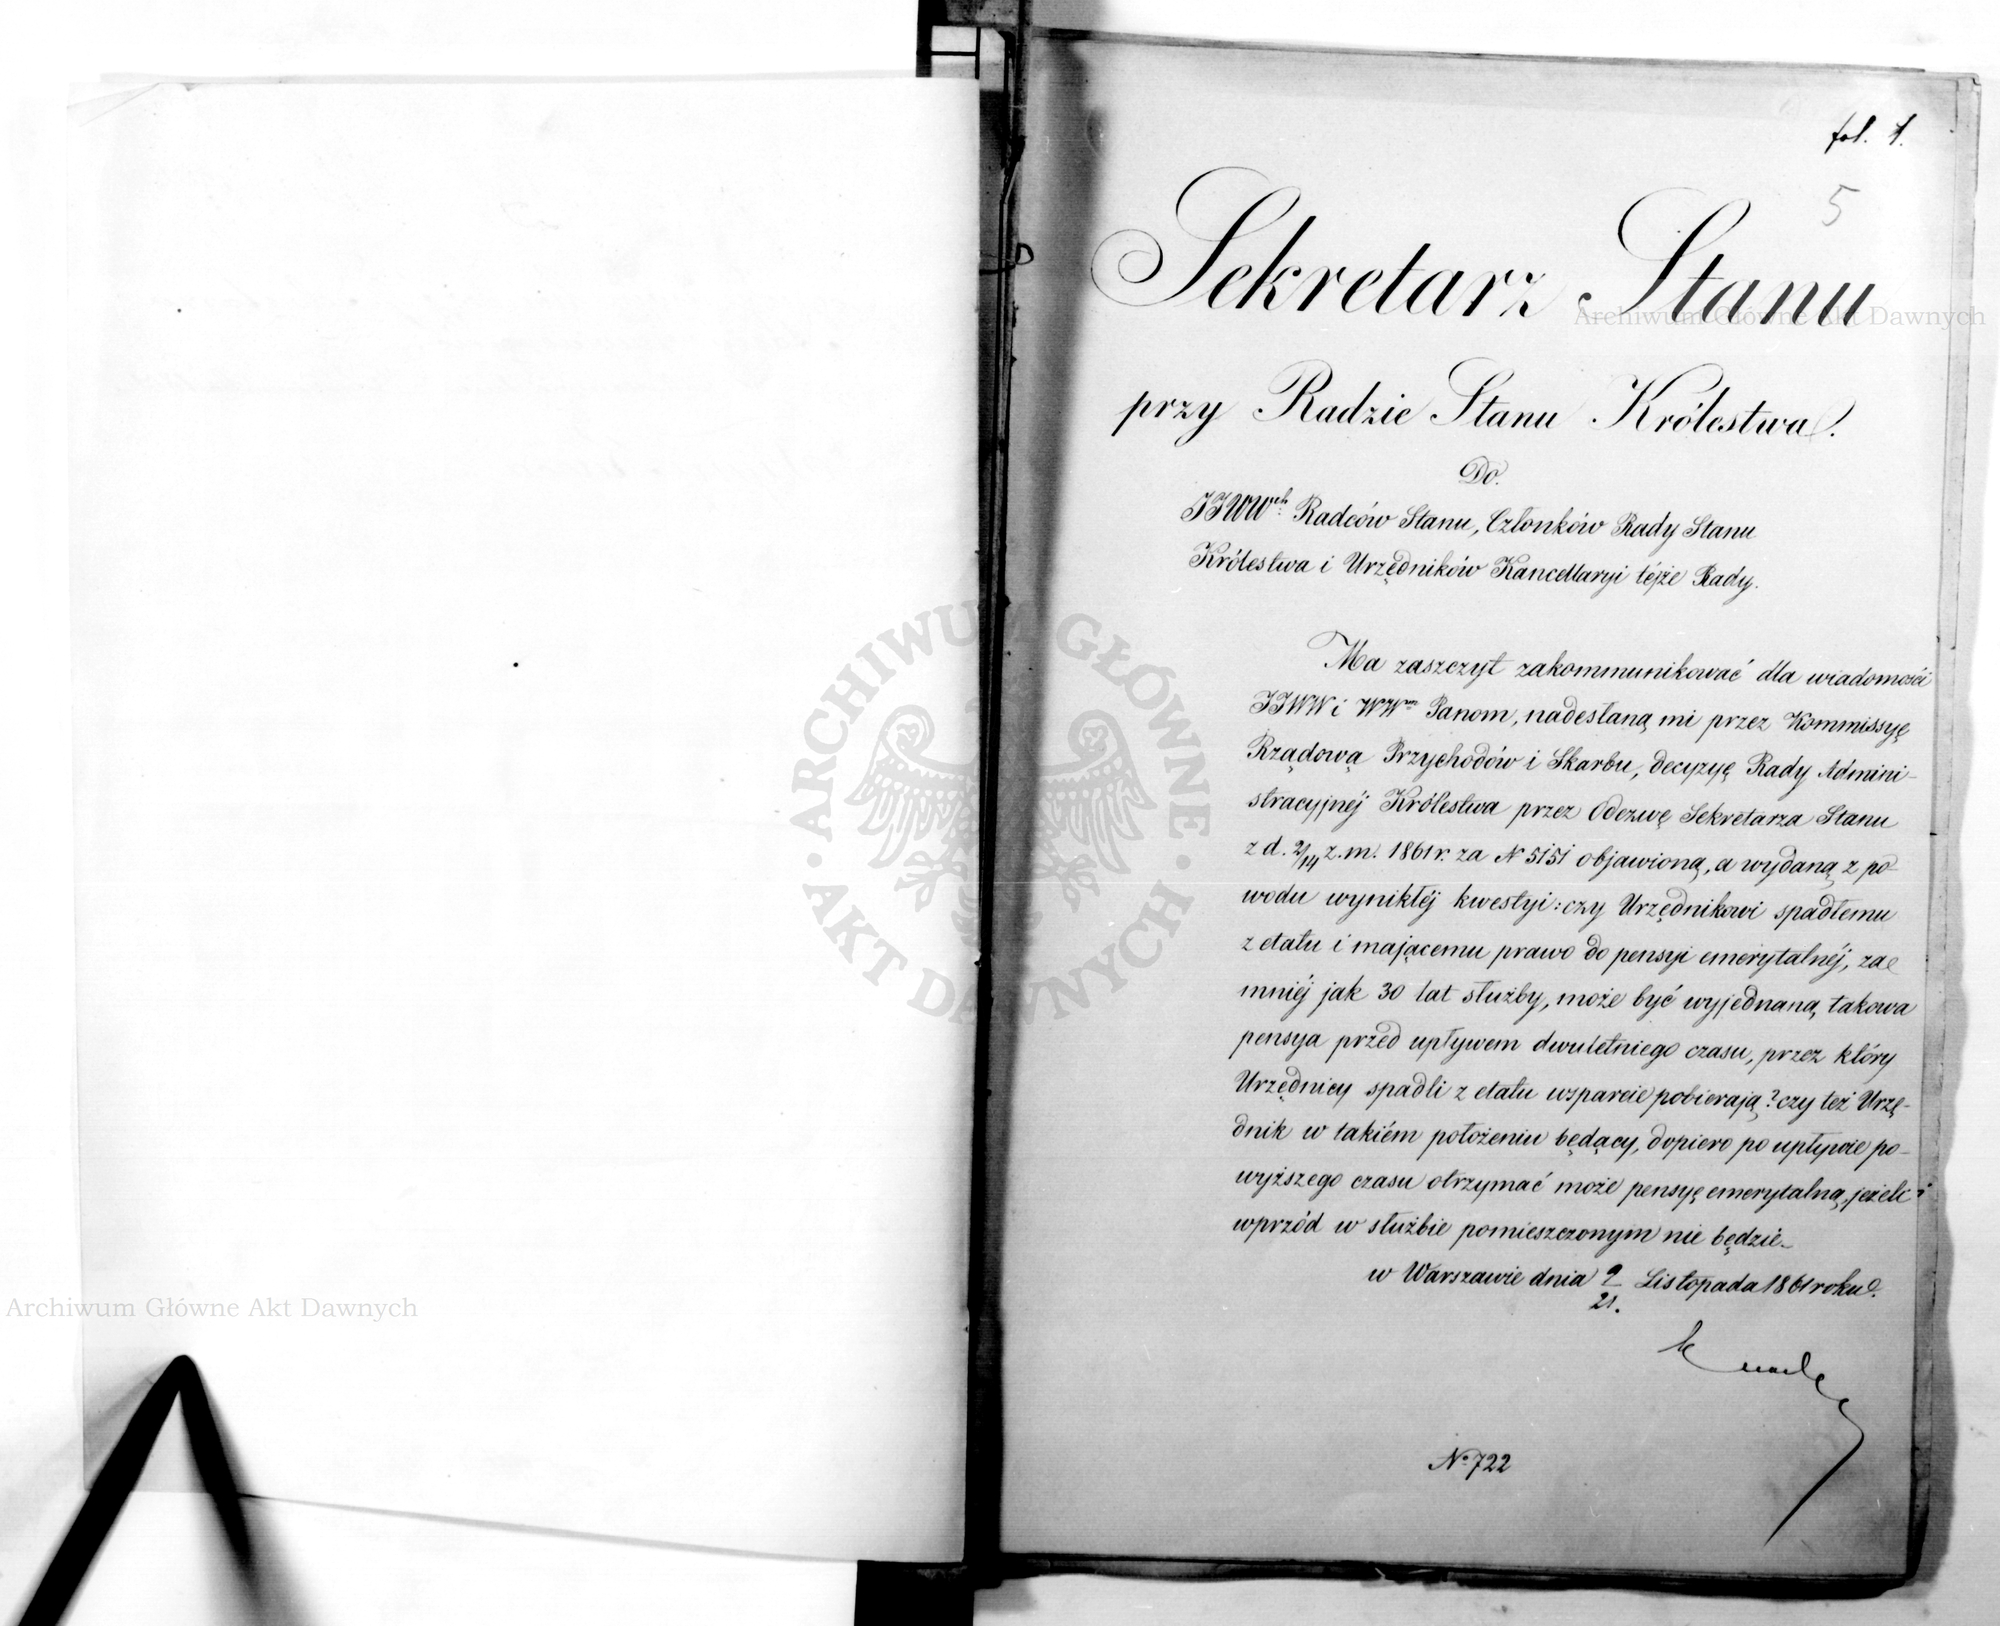 fol. 1.
5
Sekretarz Stanu
przy Radzie Stanu Królestwa.
Do.
JJWWch Radców Stanu, Członków Rady Stanu
Królestwa i Urzędników Kancellaryi téjże Rady.
Ma zaszczyt zakommunikować dla wiadomości
JJWW i WWm Panom, nadesłaną mi przez Kommissyę
Rządową Przychodów i Skarbu, decyzyę Rady Admini-
stracyjnéj Królestwa przez Odezwę Sekretarza Stanu
z d. 2/14 z.m. 1861 r. za N 5151 objawioną, a wydaną z po-
wodu wynikłéj kwestyi: czy Urzędnikowi spadłemu
z etatu i mającemu prawo do pensyi emerytalnéj, za
mniéj jak 30 lat służby, może być wyjednaną takowa
pensya przed upływem dwuletniego czasu, przez który
Urzędnicy spadli z etatu wsparcie pobierają? czy też Urzę-
dnik w takiém położeniu będący, dopiero po upływie po-
wyższego czasu otrzymać może pensyę emerytalną, jeżeli
wprzód w służbie pomieszczonym nie będzie_
w Warszawie dnia 9/21. Listopada 1861 roku.
No 722
Archiwum Główne Akt Dawnych
Archiwum Główne Akt Dawnych
ARCHIWUM GŁÓWNE • AKT DAWNYCH •